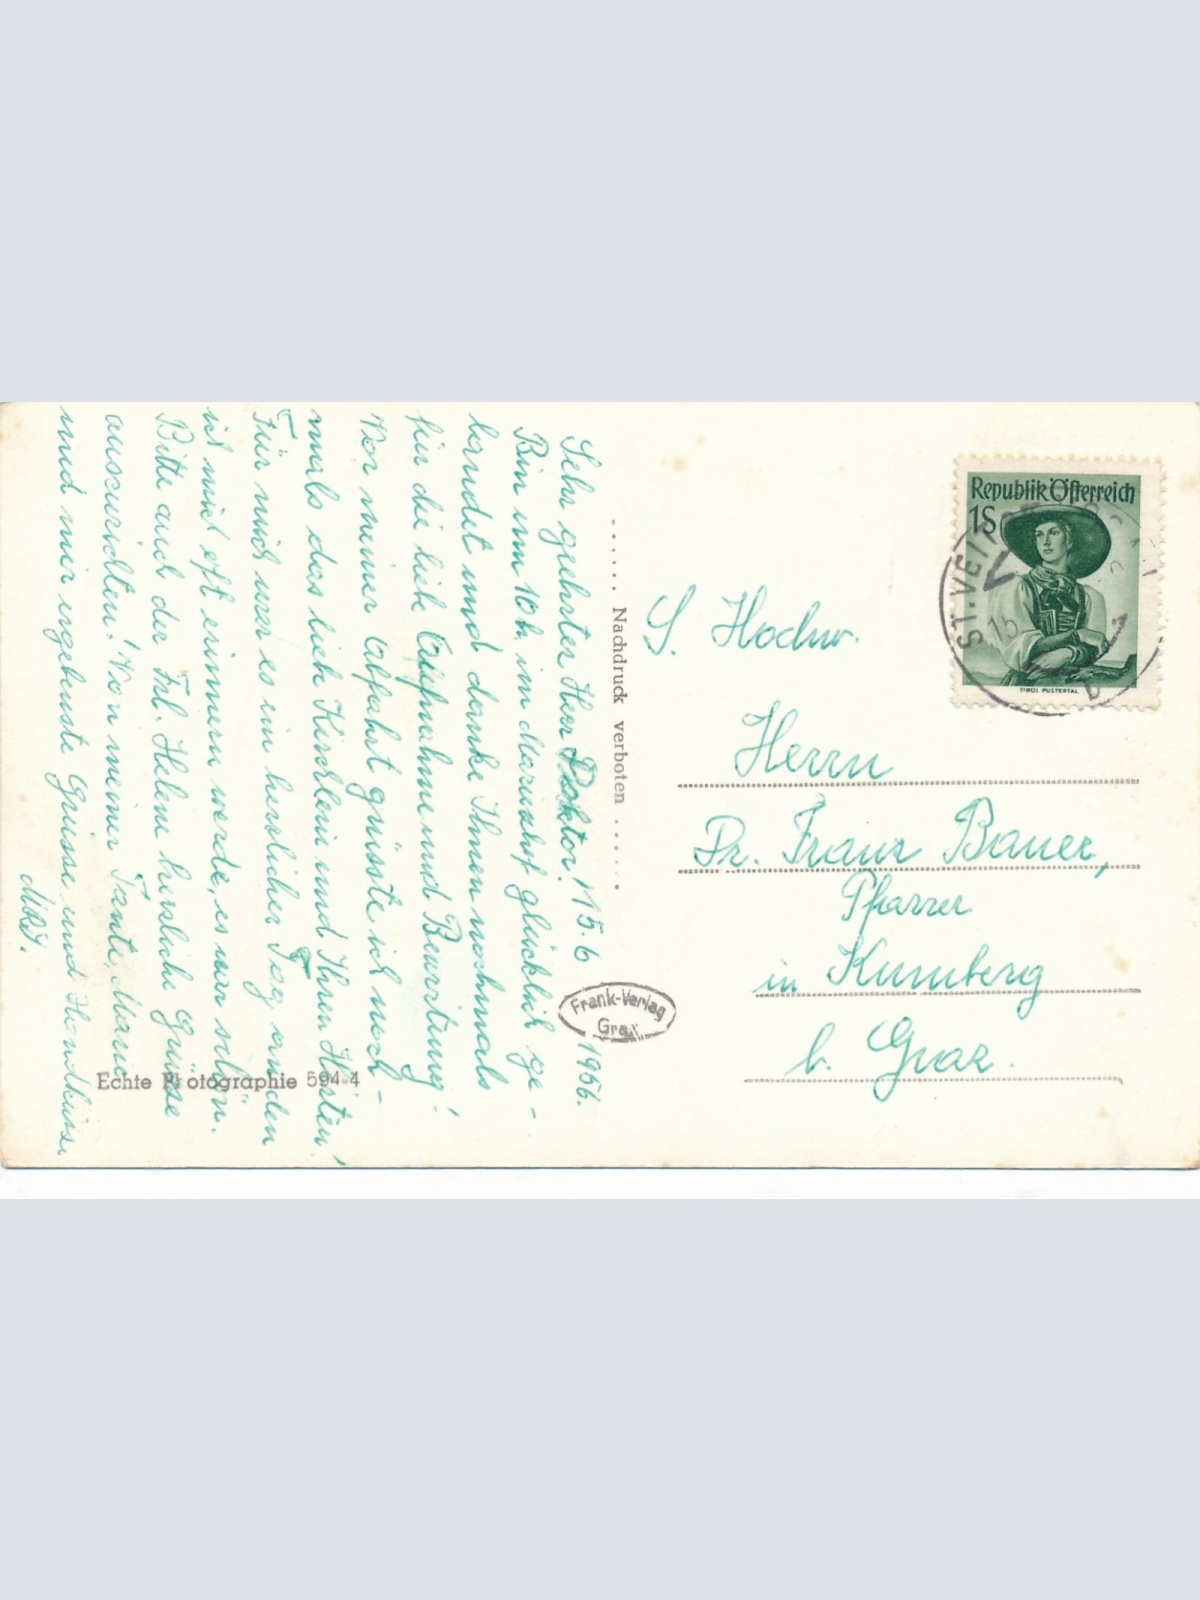 Sehr geehrter Herr Doktor! 15.6 1956.
Bin um 10h im Mariahof glücklich ge-
landet und danke Ihnen nochmals
für die lieb Aufnahme und Bewirtung!
Vor meiner Abfahrt grüsste ich noch-
mals das lieb Kirchlein und Ihren Hirten!
Für mich war es ein herzlicher Tag, an den
ich mich oft erinnern werde, es war schön.
Bitte auch der Frl. Helene herzliche Grüsse
auszurichten! Von meiner Tante, Marie
und mir ergebenste Grüsse und Handküsse
Nachdruck verboten
Frank-Verlag
Graz
Echte Photographie 594-4
Republik Österreich
1S
TIROL PUSTERTAL
ST.VEI
15
b
S. Hochw.
Herrn
Dr. Franz Bauer,
Pfarrer
in Kumberg
b. Graz.